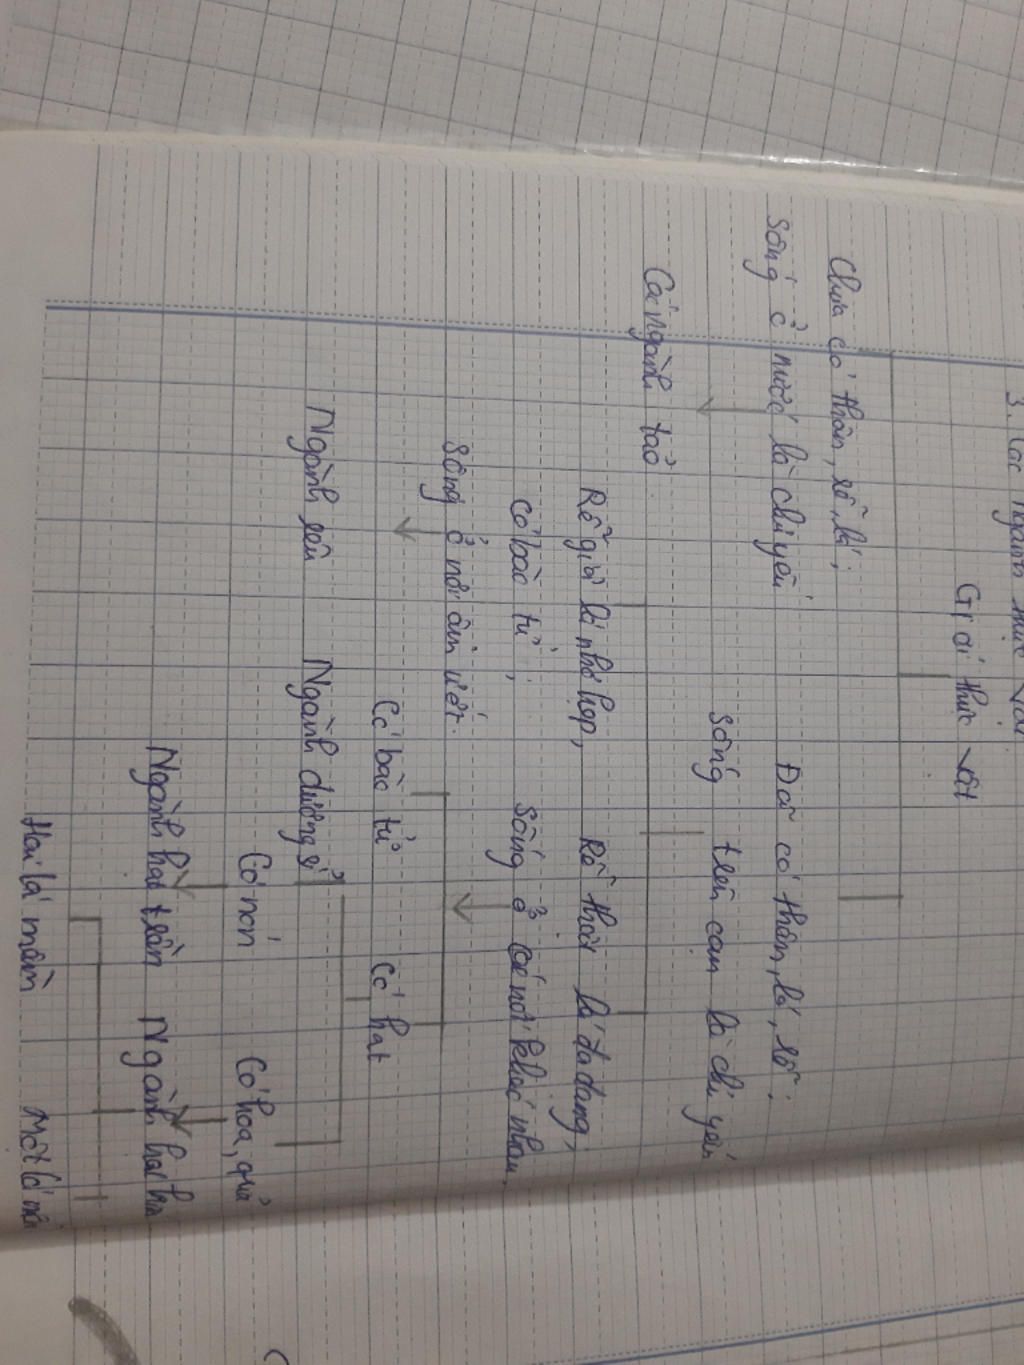 3. Các ngành thực vật
Giới thực vật
Chưa có thân, rễ, lá;
Đã có thân, lá, rễ;
Sống ở nước là chủ yếu
Sống trên cạn là chủ yếu
Các ngành tảo
Rễ giả lá nhỏ hẹp,
Rễ thật lá đa dạng;
Có bào tử;
Sống ở các nơi khác nhau.
Sống ở nơi ẩm ướt.
Có bào tử
Có hạt
Ngành rêu
Ngành dương sỉ
Có nón
Có hoa, quả
Ngành hạt trần
Ngành hạt kín
Hai lá mầm
Một lá mầm